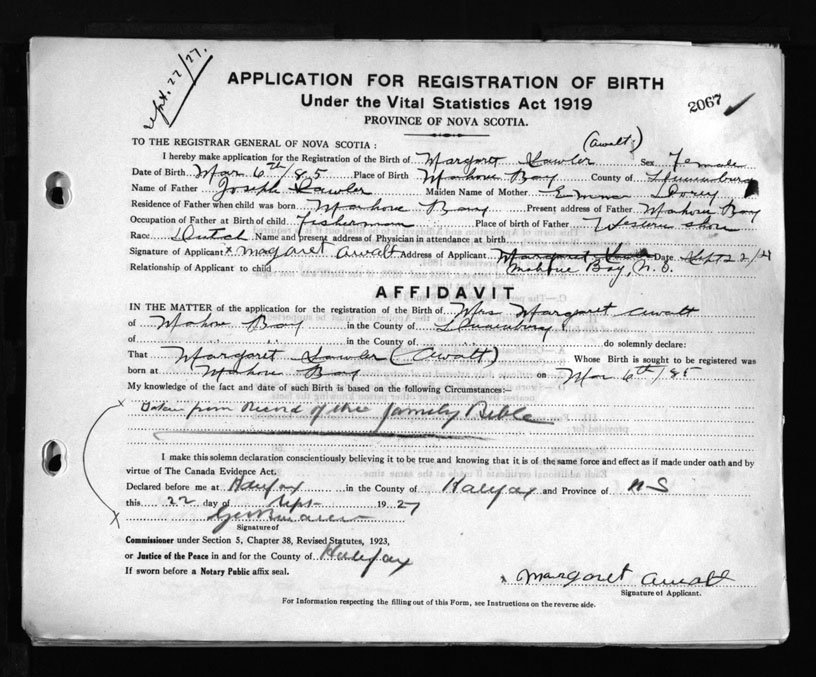 Sept. 22/27.
APPLICATION FOR REGISTRATION OF BIRTH
Under the Vital Statistics Act 1919
2067
PROVINCE OF NOVA SCOTIA.
TO THE REGISTRAR GENERAL OF NOVA SCOTIA :
(Awalt)
I hereby make application for the Registration of the Birth of Margaret Lawler Sex Female
Date of Birth Mar 6th/85 Place of Birth Mahone Bay County of Lunenburg
Name of Father Joseph Lawler Maiden Name of Mother Emma Dorey
Residence of Father when child was born Mahone Bay Present address of Father Mahone Bay
Occupation of Father at Birth of child Fisherman Place of birth of Father Western Shore
Race Dutch Name and present address of Physician in attendance at birth
Signature of Applicant x Margaret Awalt Address of Applicant Margaret Date Sept 22/27
Relationship of Applicant to child Mahone Bay, N. S.
AFFIDAVIT
IN THE MATTER of the application for the registration of the Birth of Mrs Margaret Awalt
of Mahone Bay in the County of Lunenburg
of in the County of do solemnly declare:
That Margaret Lawler (Awalt) Whose Birth is sought to be registered was
born at Mahone Bay on Mar 6th/85
My knowledge of the fact and date of such Birth is based on the following Circumstances:—
x Taken from Record of the family Bible
I make this solemn declaration conscientiously believing it to be true and knowing that it is of the same force and effect as if made under oath and by
virtue of The Canada Evidence Act.
Declared before me at Halifax in the County of Halifax and Province of N S
this 22 day of Sept 1927
x
Signature of
Commissioner under Section 5, Chapter 38, Revised Statutes, 1923,
or Justice of the Peace in and for the County of Halifax
If sworn before a Notary Public affix seal.
x Margaret Awalt
Signature of Applicant.
For Information respecting the filling out of this Form, see Instructions on the reverse side.